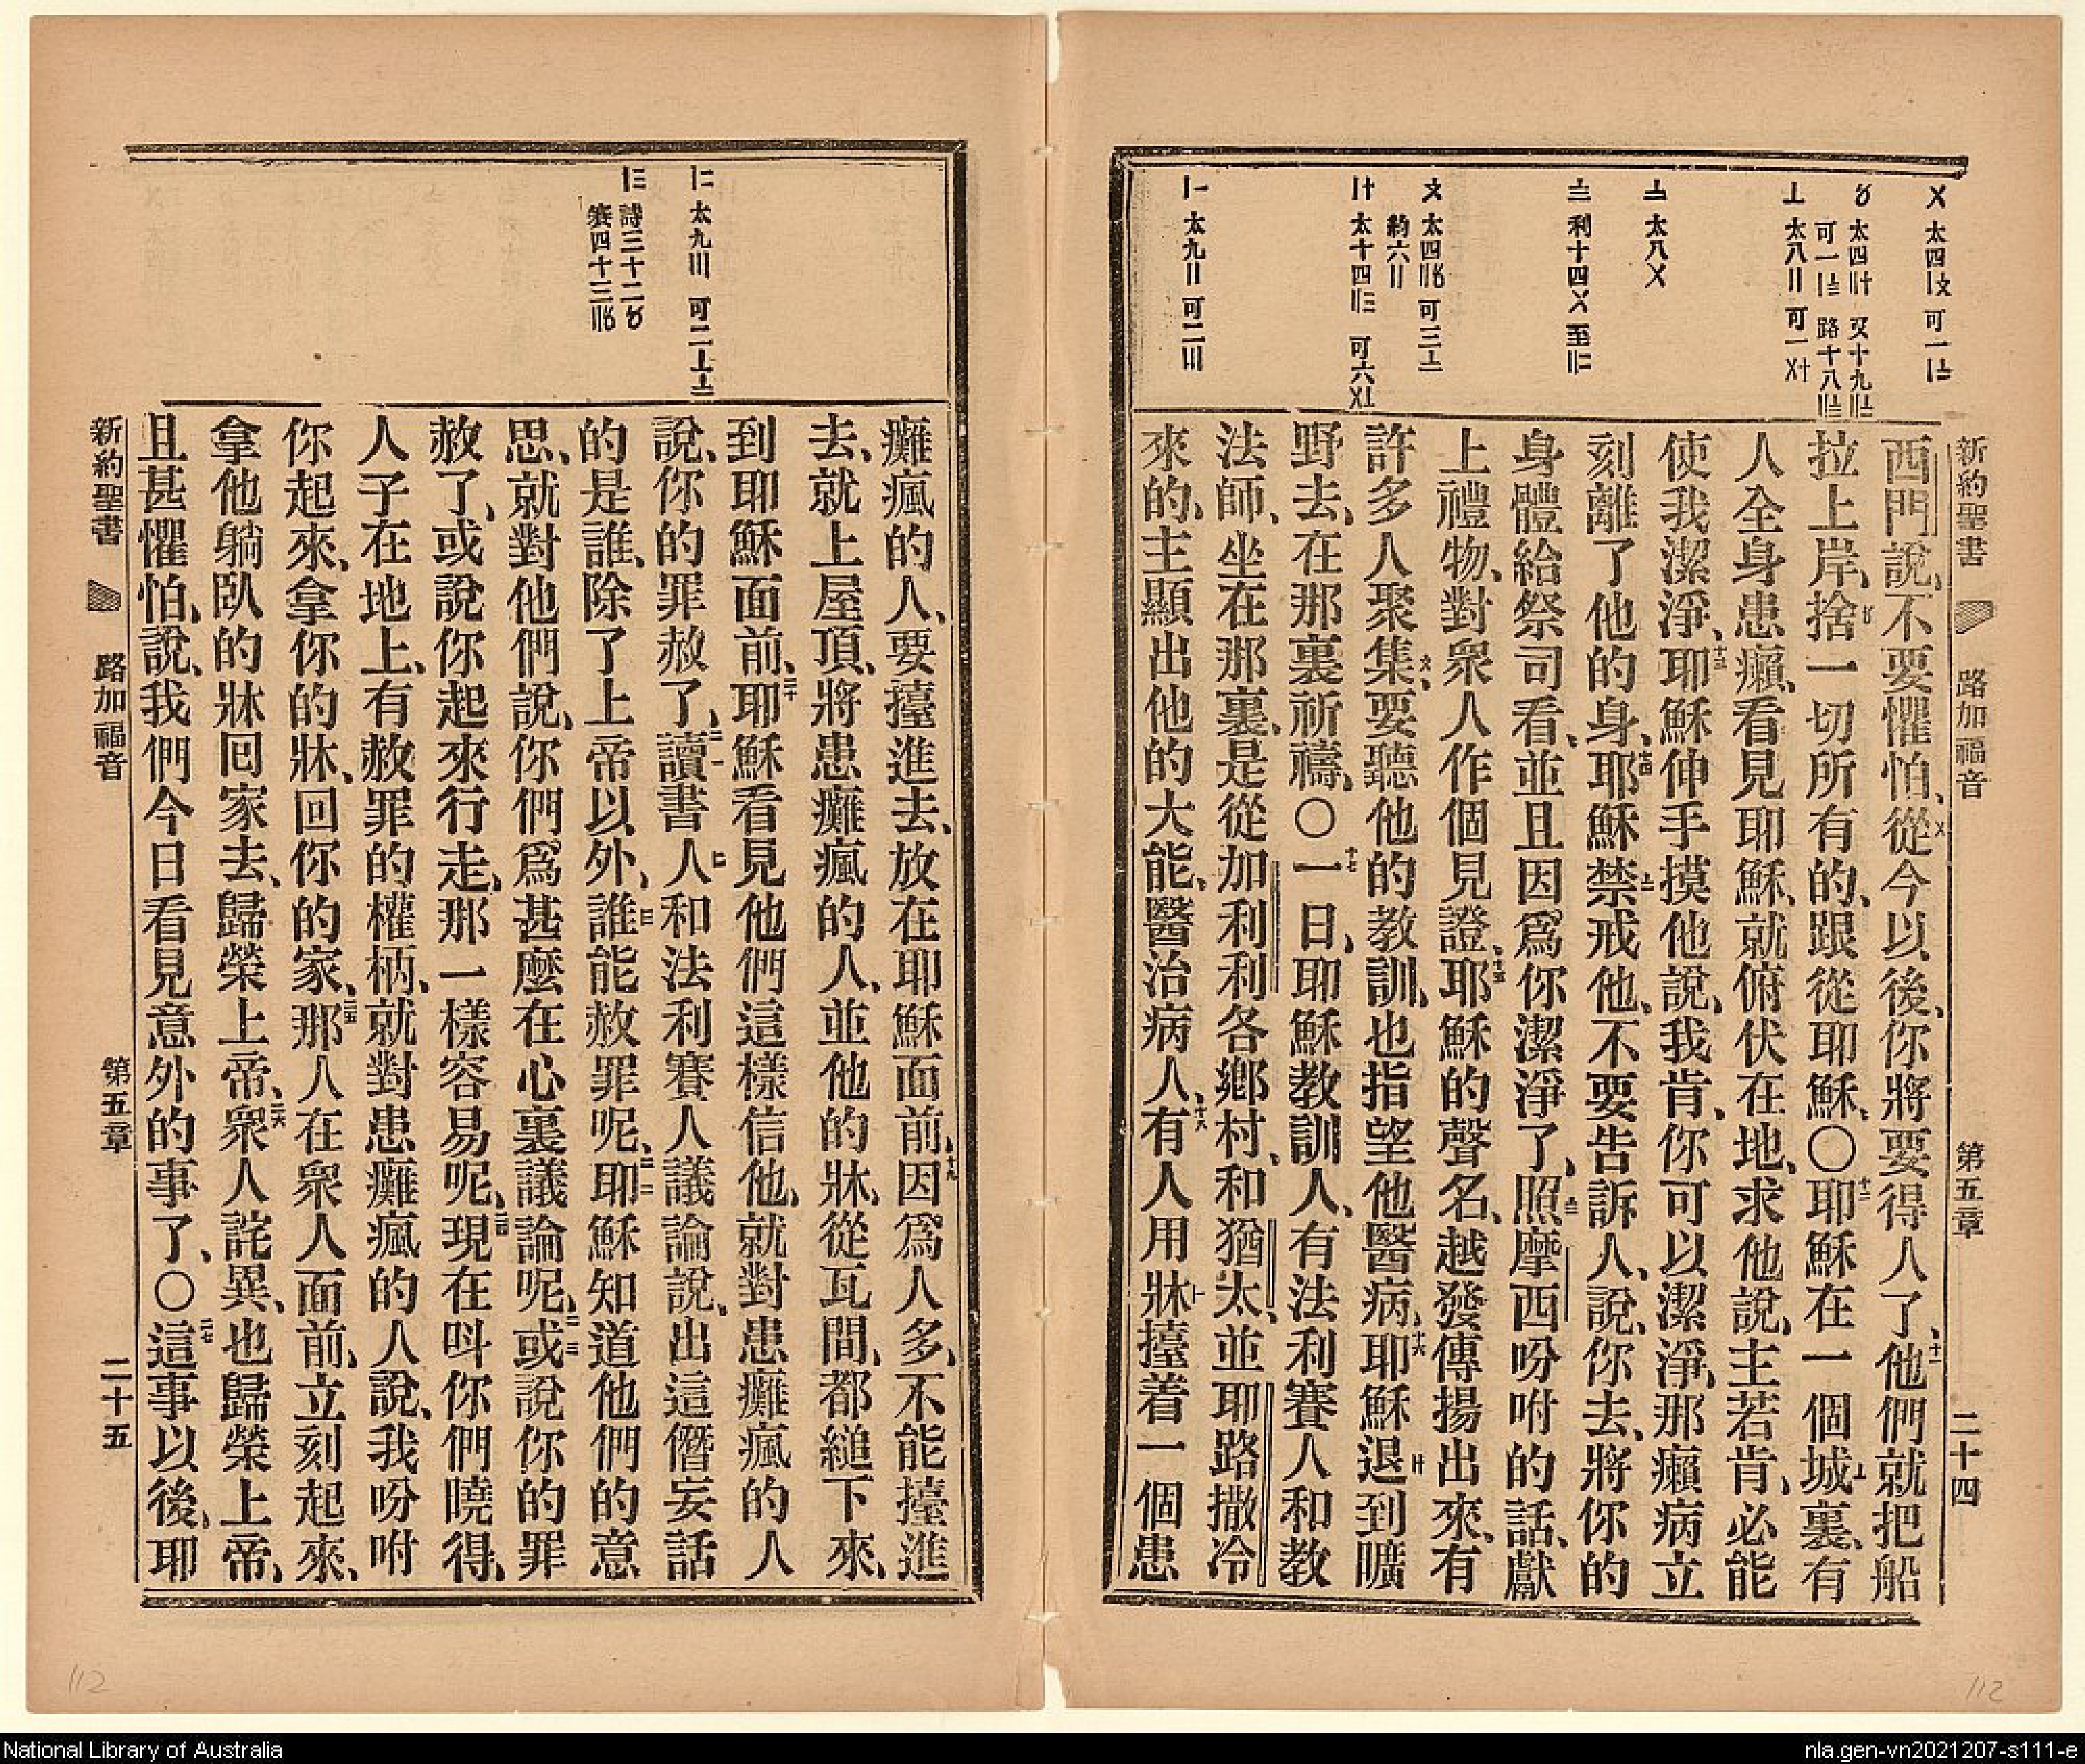 新約聖書 路加福音 第五章 二十四
〤 太四〡文 可一〡〨
〥 太四〢十 又十九〢〧
可一〡〨 路十八〢〨
〦 太八〢 可一〤十
〧 太八〤
〨 利十四〤 至〢二
文 太四〢〥 可三〧
約六〢
〡十 太十四〢三 可六〤〦
〡一 太九〢 可二〣
西門說、不要懼怕、從今以後、你將要得人了、十一他們就把船
拉上岸、捨一切所有的、跟從耶穌、〇十二耶穌在一個城裏、有
人全身患癩、看見耶穌、就俯伏在地、求他說、主若肯、必能
使我潔淨、十三耶穌伸手摸他說、我肯、你可以潔淨、那癩病立
刻離了他的身、十四耶穌禁戒他、不要告訴人、說、你去、將你的
身體給祭司看、並且因爲你潔淨了、照摩西吩咐的話、獻
上禮物、對衆人作個見證、十五耶穌的聲名、越發傳揚出來、有
許多人聚集、要聽他的教訓、也指望他醫病、十六耶穌退到曠
野去、在那裏祈禱、〇十七一日、耶穌教訓人、有法利賽人和教
法師、坐在那裏、是從加利利各鄉村、和猶太、並耶路撒冷
來的、主顯出他的大能、醫治病人、十八有人用牀擡着一個患
〡二 太九〣 可二〦〨
〡三 詩三十二〥
賽四十三〢〥
癱瘋的人、要擡進去、放在耶穌面前、十九因爲人多、不能擡進
去、就上屋頂、將患癱瘋的人、並他的牀、從瓦間、都縋下來、
到耶穌面前、二十耶穌看見他們這樣信他、就對患癱瘋的人
說、你的罪赦了、二一讀書人和法利賽人議論說、出這僭妄話
的是誰、除了上帝以外、誰能赦罪呢、二二耶穌知道他們的意
思、就對他們說、你們爲甚麼在心裏議論呢、二三或說你的罪
赦了、或說你起來行走、那一樣容易呢、二四現在呌你們曉得、
人子在地上、有赦罪的權柄、就對患癱瘋的人說、我吩咐
你起來、拿你的牀、回你的家、二五那人在衆人面前、立刻起來、
拿他躺臥的牀回家去、歸榮上帝、二六衆人詫異、也歸榮上帝、
且甚懼怕、說、我們今日看見意外的事了、〇二七這事以後、耶
新約聖書 路加福音 第五章 二十五
112
112
National Library of Australia
nla.gen-vn2021207-s111-e